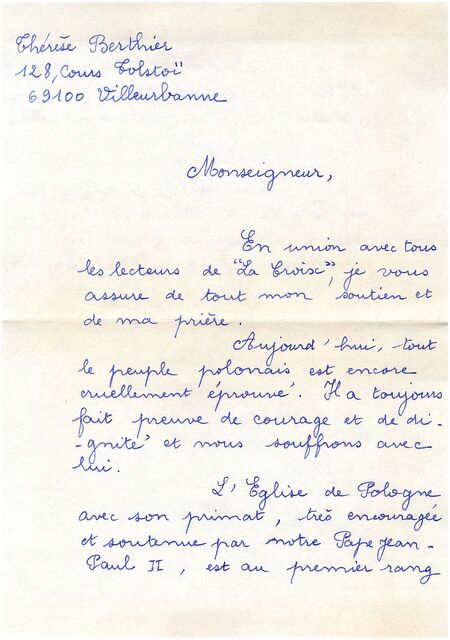 Thérèse Berthier
128, Cours Tolstoï
69100 Villeurbanne
Monseigneur,
En union avec tous
les lecteurs de "La Croix", je vous
assure de tout mon soutien et
de ma prière.
Aujourd'hui, tout
le peuple polonais est encore
cruellement éprouvé. Il a toujours
fait preuve de courage et de di-
-gnité et nous souffrons avec
lui.
L'Eglise de Pologne
avec son primat, très encouragée
et soutenue par notre Pape Jean-
Paul II, est au premier rang